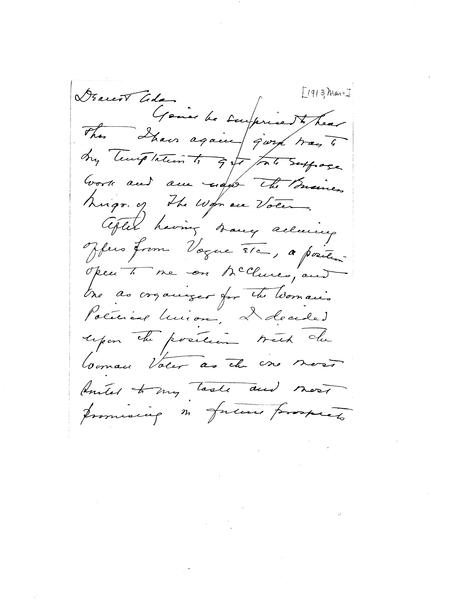 [1913, Mar-]
Dearest Ada
You'll be surprised to hear
that I have again given way to
my temptation to get into suffrage
work and am now the Business
Mngr. of The Woman Voter.
After having many alluring
offers from Vogue etc, a position
open to me on McClures, and
one as organizer for the Woman's
Political Union, I decided
upon the position with the
Woman Voter as the one most
suited to my taste and most
promising in future prospects